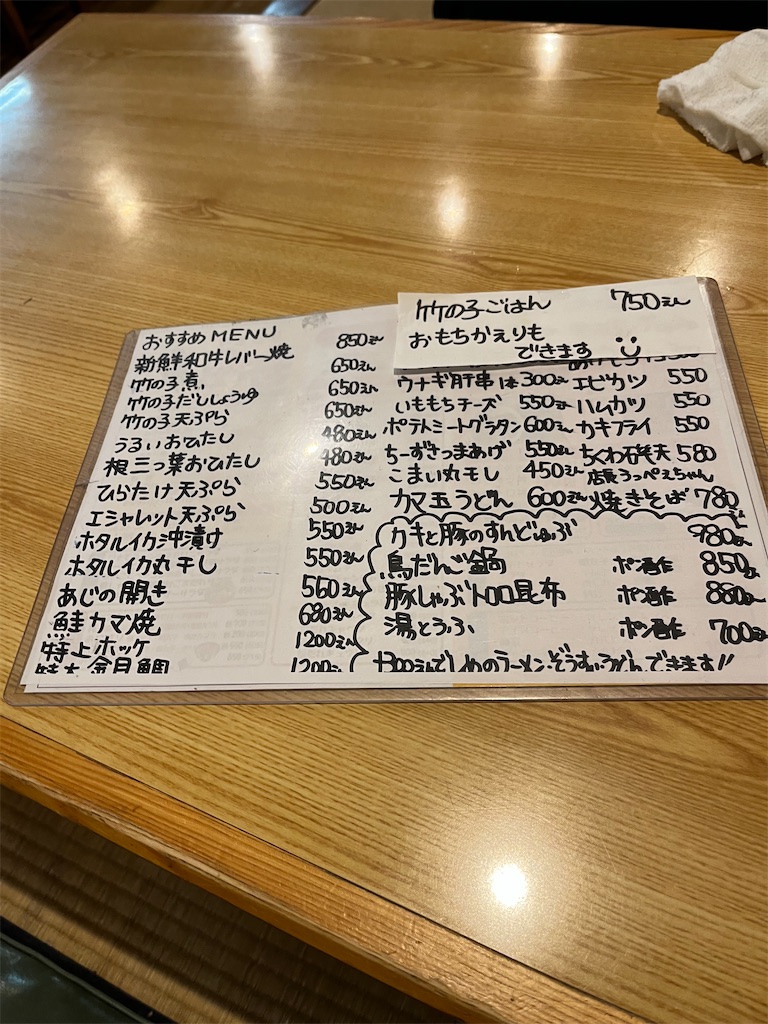 おすすめMENU
新鮮和牛レバー焼 850えん
竹の子煮 650えん
竹の子だししょうゆ 650えん
竹の子天ぷら 650えん
うるいおひたし 480えん
根三つ葉おひたし 480えん
ひらたけ天ぷら 550えん
エシャレット天ぷら 500えん
ホタルイカ沖漬け 550えん
ホタルイカ丸干し 550えん
あじの開き 560えん
鮭カマ焼 680えん
特上ホッケ 1200えん
特大金目鯛 1200えん
竹の子ごはん 750えん
おもちかえりも
できます
ウナギ肝串 1本 300えん エビカツ 550
いももちチーズ 550えん ハムカツ 550
ポテトミートグラタン 600えん カキフライ 550
ちーずさつまあげ 550えん ちくわ磯天 580
こまい丸干し 450えん 店長うっぺえちゃん
カマ玉うどん 600えん 焼きそば 780
カキと豚のすんどぅぶ 980えん
鳥だんご鍋 ポン酢 850えん
豚しゃぶトロロ昆布 ポン酢 880えん
湯とうふ ポン酢 700えん
+300えんで〆のラーメン・ぞうすい・うどんできます!!